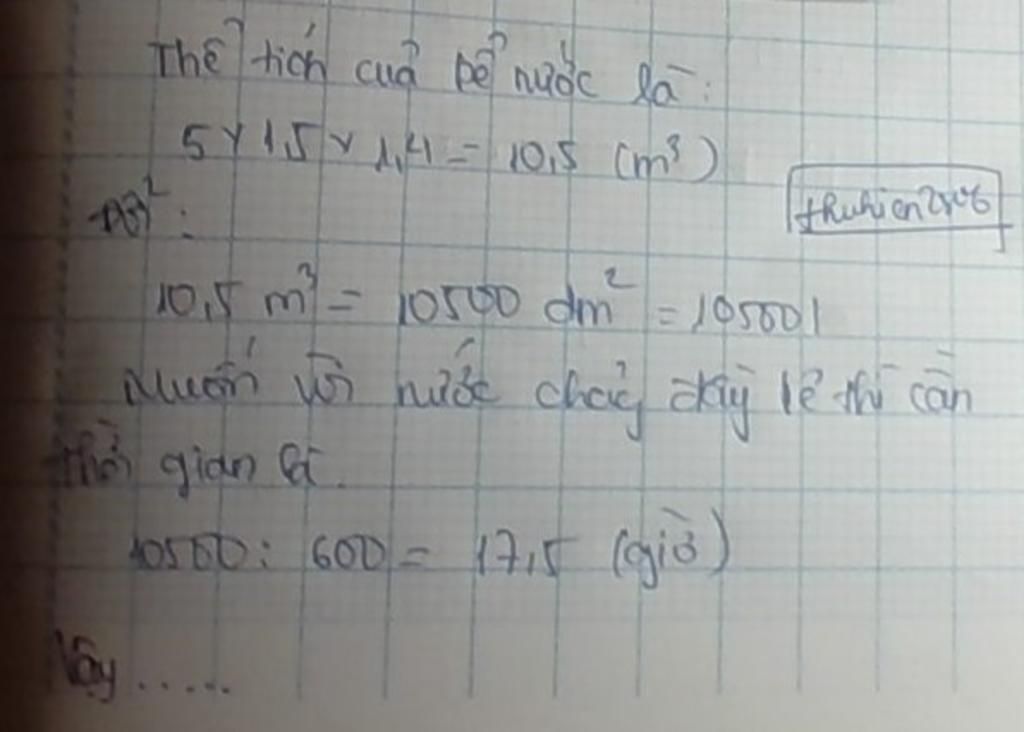 Thể tích của bể nước là:
5 x 1,5 x 1,4 = 10,5 (m³)
Đổi:
thuhien2406
10,5 m³ = 10500 dm² = 10500l
Muốn vòi nước chảy đầy bể thì cần
thời gian là.
10500 : 600 = 17,5 (giờ)
Vậy .....